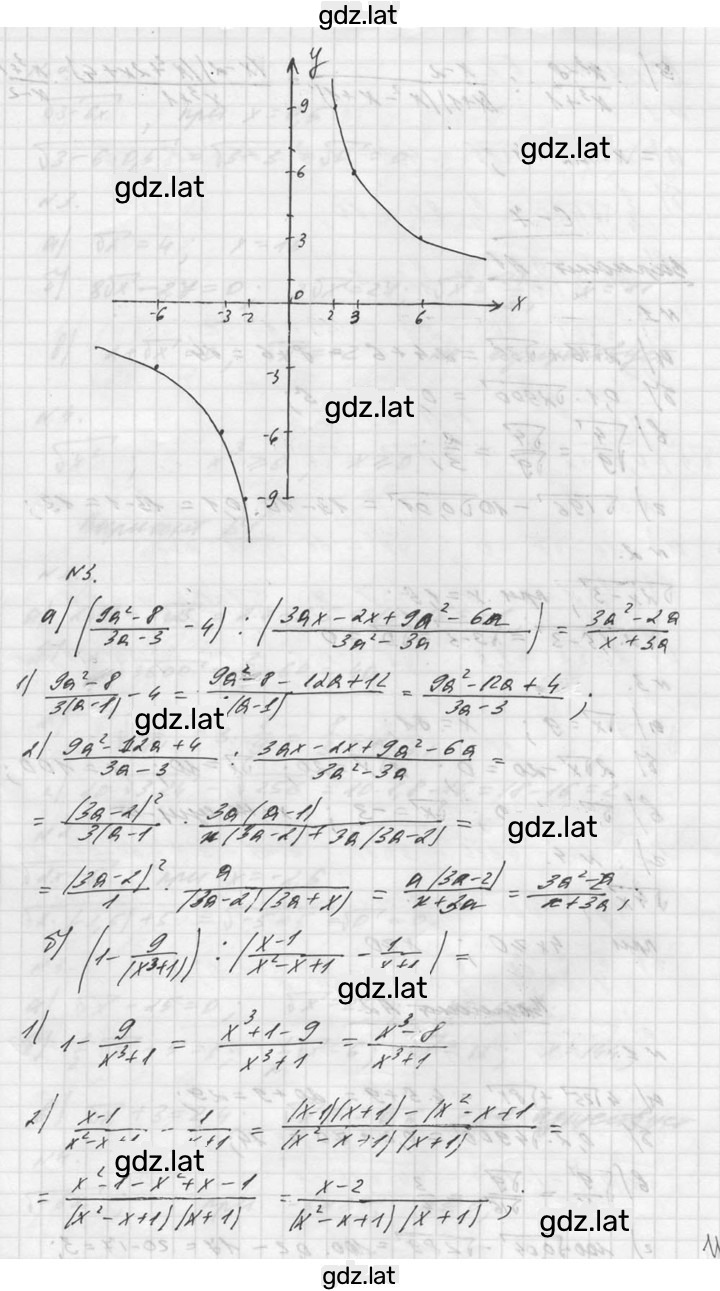 gdz.lat
y
9
gdz.lat
6
gdz.lat
3
0
-6 -3 -2 2 3 6 x
-3
gdz.lat
-6
-9
№3.
а) ((9a² - 8)/(3a - 3) - 4) : ((3ax - 2x + 9a² - 6a)/(3a² - 3a)) = (3a² - 2a)/(x + 3a)
1) (9a² - 8)/(3(a - 1)) - 4 = (9a² - 8 - 12a + 12)/((a - 1)) = (9a² - 12a + 4)/(3a - 3);
gdz.lat
2) (9a² - 12a + 4)/(3a - 3) : (3ax - 2x + 9a² - 6a)/(3a² - 3a) =
= (3a - 2)²/(3(a - 1) · 3a(a - 1)/(x(3a - 2) + 3a(3a - 2)) =
gdz.lat
= (3a - 2)²/1 · a/((3a - 2)(3a + x)) = a(3a - 2)/(x + 3a) = (3a² - 2a)/(x + 3a);
б) (1 - 9/(x³ + 1)) : ((x - 1)/(x² - x + 1) - 1/(x + 1)) =
gdz.lat
1) 1 - 9/(x³ + 1) = (x³ + 1 - 9)/(x³ + 1) = (x³ - 8)/(x³ + 1)
2) (x - 1)/(x² - x + 1) - 1/(x + 1) = ((x - 1)(x + 1) - (x² - x + 1)/((x² - x + 1)(x + 1)) =
gdz.lat
= (x² - 1 - x² + x - 1)/((x² - x + 1)(x + 1)) = (x - 2)/((x² - x + 1)(x + 1));
gdz.lat
gdz.lat